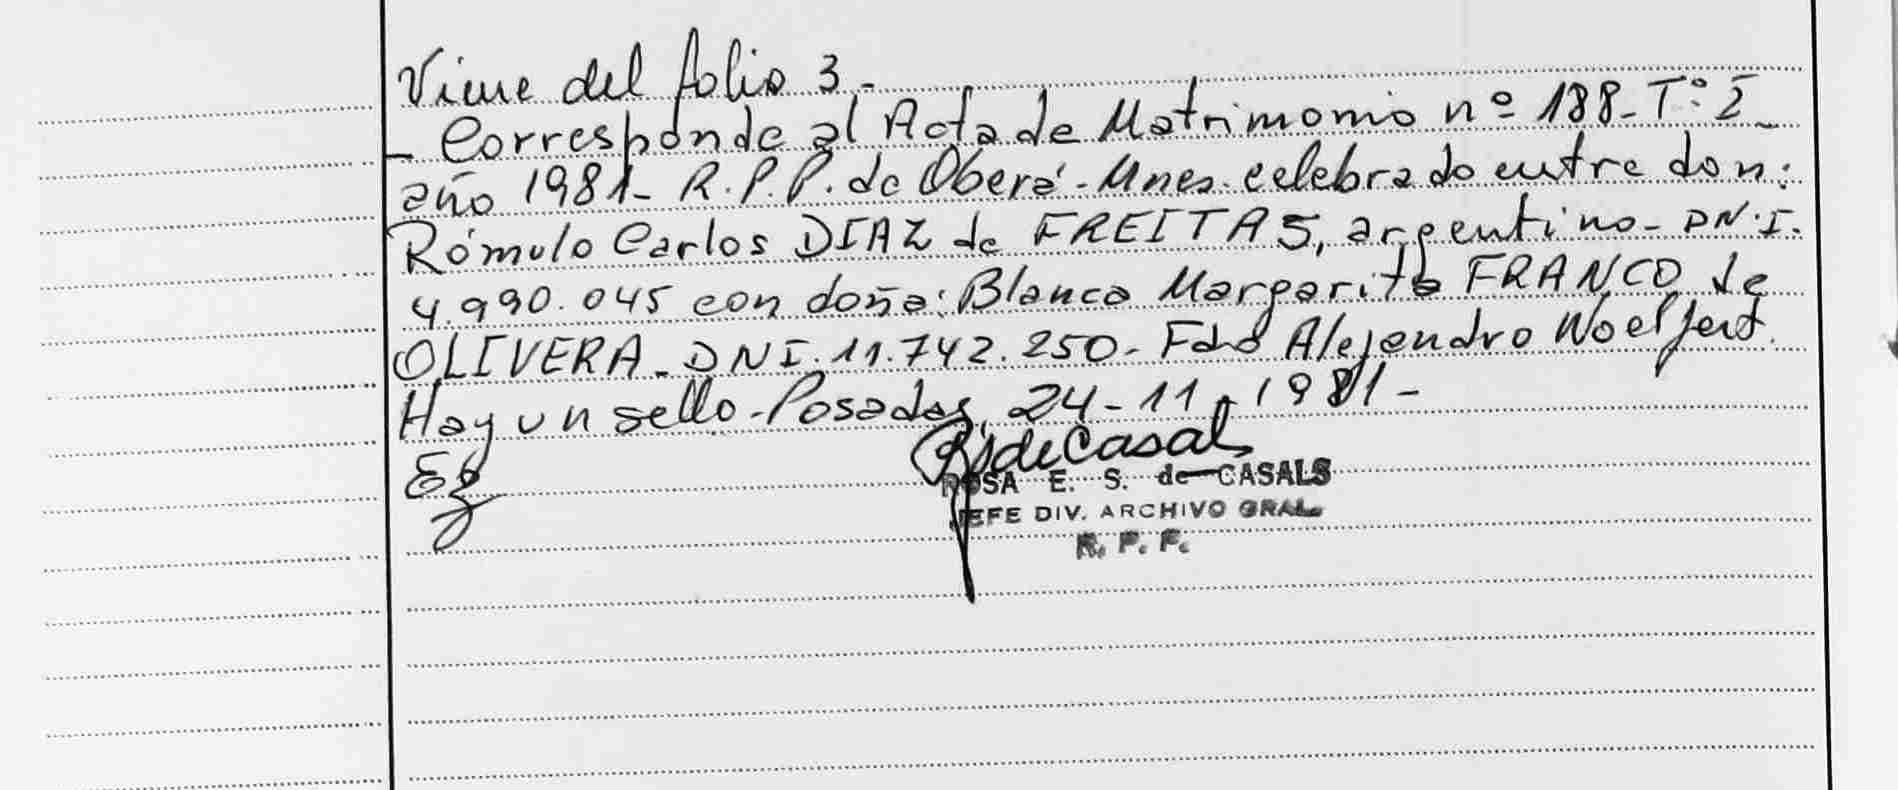 Viene del folio 3-
- Corresponde al Acta de Matrimonio nº 188- Tº I-
año 1981- R.P.P. de Oberá- Mnes. celebrado entre don:
Rómulo Carlos DIAZ de FREITAS, argentino- DN.I.
4.990.045 con doña: Blanca Margarita FRANCO de
OLIVERA- DNI. 11.742.250- Fdo Alejandro Woelfert.
Hay un sello- Posadas, 24-11-1981-
de Casal
ROSA E. S. de CASALS
JEFE DIV. ARCHIVO GRAL.
R. P. P.